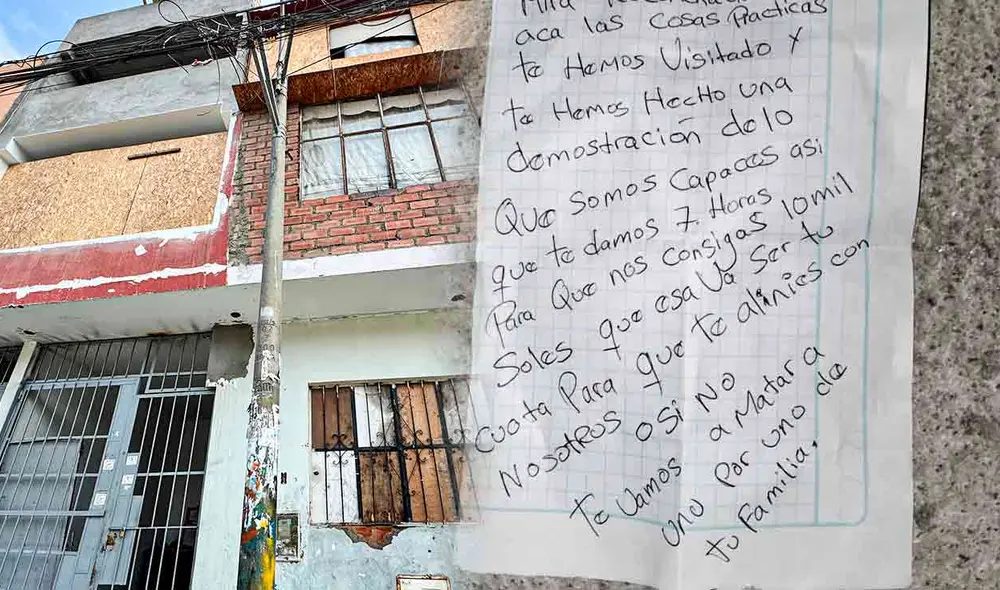 aca las Cosas Practicas
te Hemos Visitado y
te Hemos Hecho una
demostración de lo
Que somos Capaces asi
que te damos 7 Horas
Para Que nos Consigas 10mil
Soles que esa Va Ser tu
cuota Para que te alinies con
Nosotros o si No
te Vamos a Matar a
uno Por uno de
tu Familia.